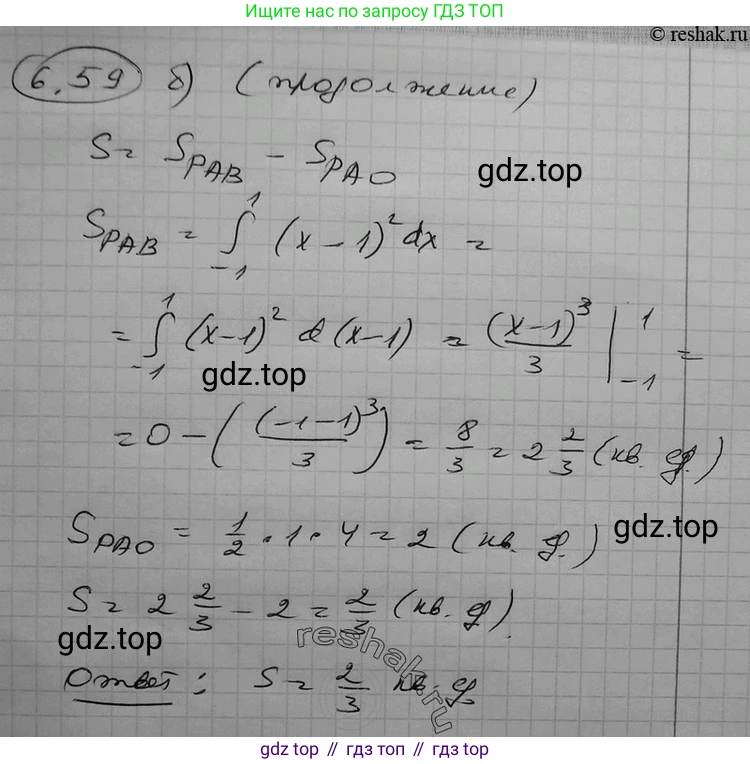 Ищите нас по запросу ГДЗ ТОП
© reshak.ru
6.59 б) (продолжение)
S = S_PAB - S_PAO
gdz.top
S_PAB = ∫_{-1}^{1} (x-1)² dx =
= ∫_{-1}^{1} (x-1)² d(x-1) = (x-1)³/3 |_{-1}^{1} =
gdz.top
= 0 - ((-1-1)³/3) = 8/3 = 2 2/3 (кв. ед.)
S_PAO = 1/2 · 1 · 4 = 2 (кв. ед.)
gdz.top
S = 2 2/3 - 2 = 2/3 (кв. ед).
gdz.top
reshak.ru
Ответ: S = 2/3 кв. ед.
gdz.top // гдз топ // гдз.top